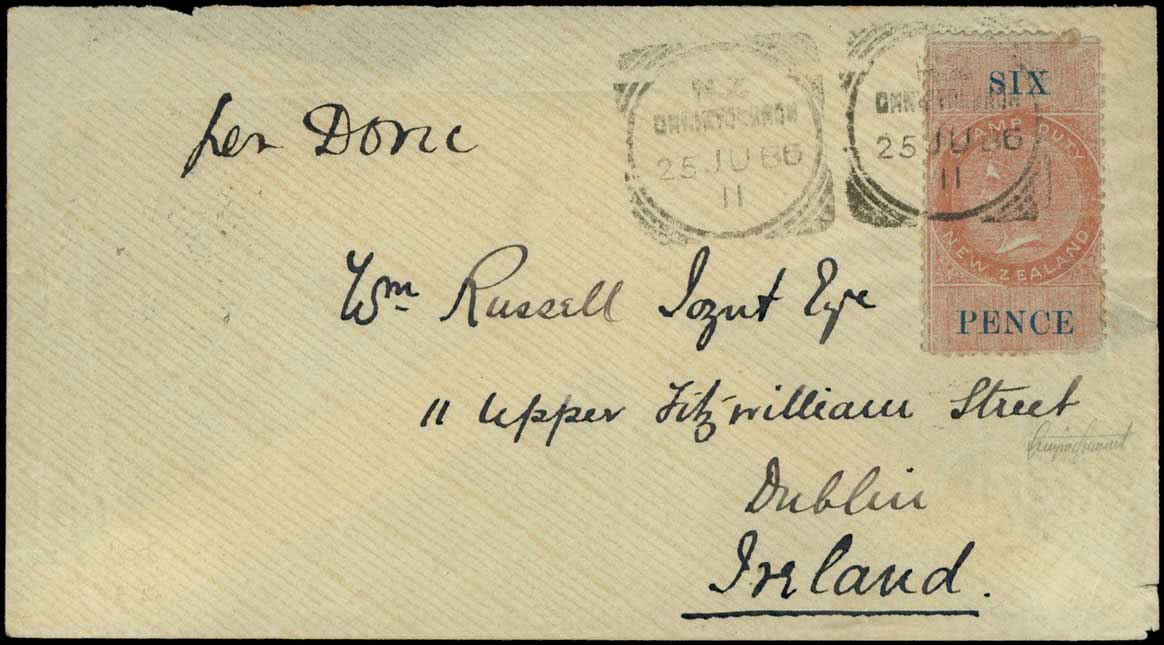 per Doric
25 JU 86
11
25 JU 86
11
SIX
STAMP DUTY
NEW ZEALAND
PENCE
Wm Russell
11 Upper Fitzwilliam Street
Dublin
Ireland.